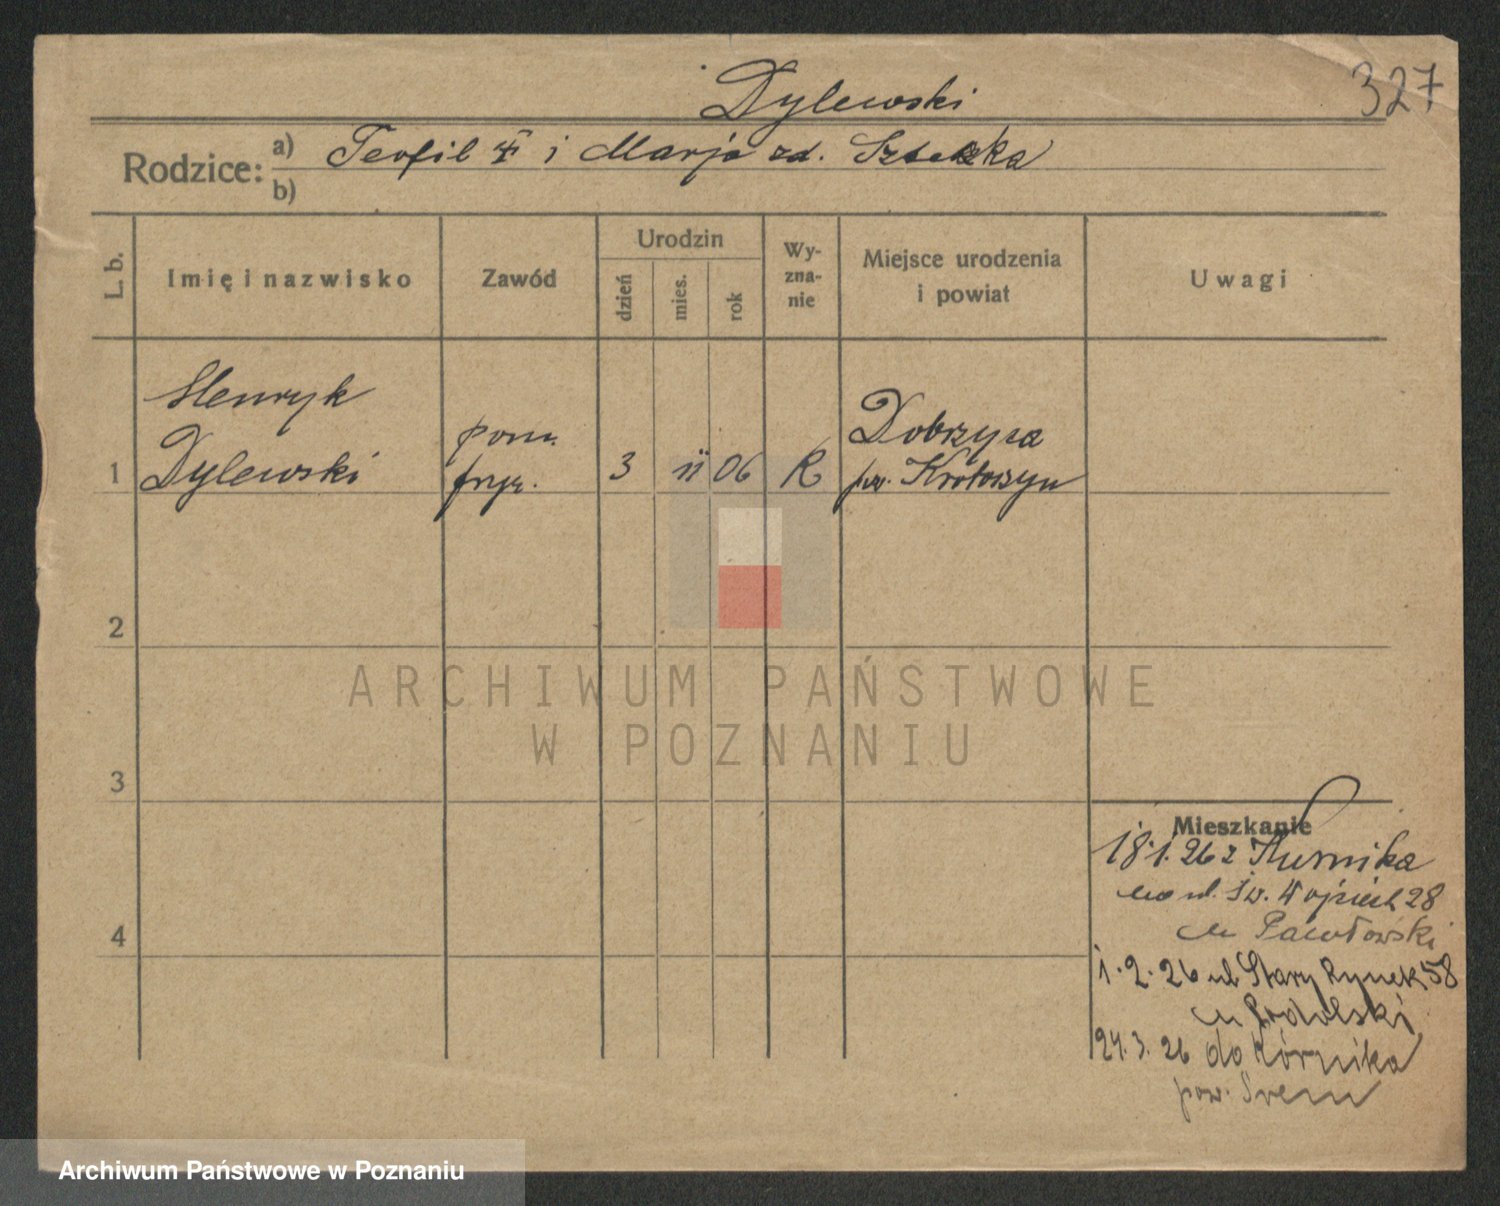 327
Dylewski
Rodzice: a) Teofil i Marja zd.
b)
L. b.
Imię i nazwisko
Zawód
Urodzin
dzień
mies.
rok
Wy-
zna-
nie
Miejsce urodzenia
i powiat
Uwagi
Henryk
Dylewski
pom.
fryz.
1
3
11
06
R
Dobrzyca
pow. Krotoszyn
2
3
4
Mieszkanie
18.1.26 z Kurnika
na ul. Św. Wojciech 28
u Pawłowski
1.2.26 ul Stary Rynek 58
u
24.3.26 do Kórnika
pow. Śrem
ARCHIWUM PAŃSTWOWE
W POZNANIU
Archiwum Państwowe w Poznaniu